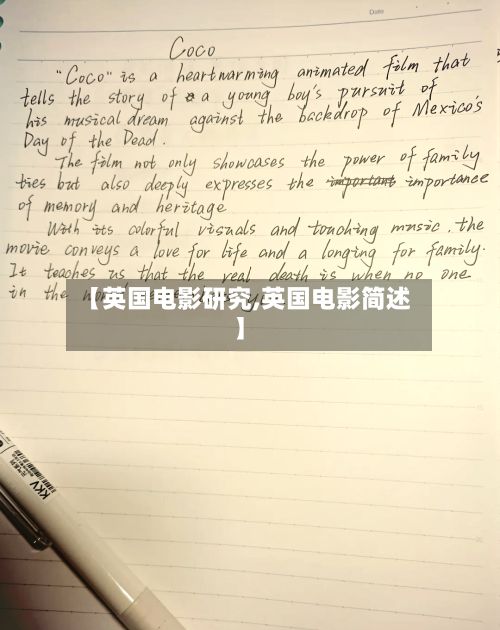 Date
Coco
"Coco" is a heartwarming animated film that
tells the story of a young boy's pursuit of
his musical dream against the backdrop of Mexico's
Day of the Dead.
The film not only showcases the power of family
ties but also deeply expresses the important importance
of memory and heritage
With its colorful visuals and touching music, the
movie conveys a love for life and a longing for family.
It teaches us that the real death is when no one
in the
【英国电影研究,英国电影简述
】
KKV